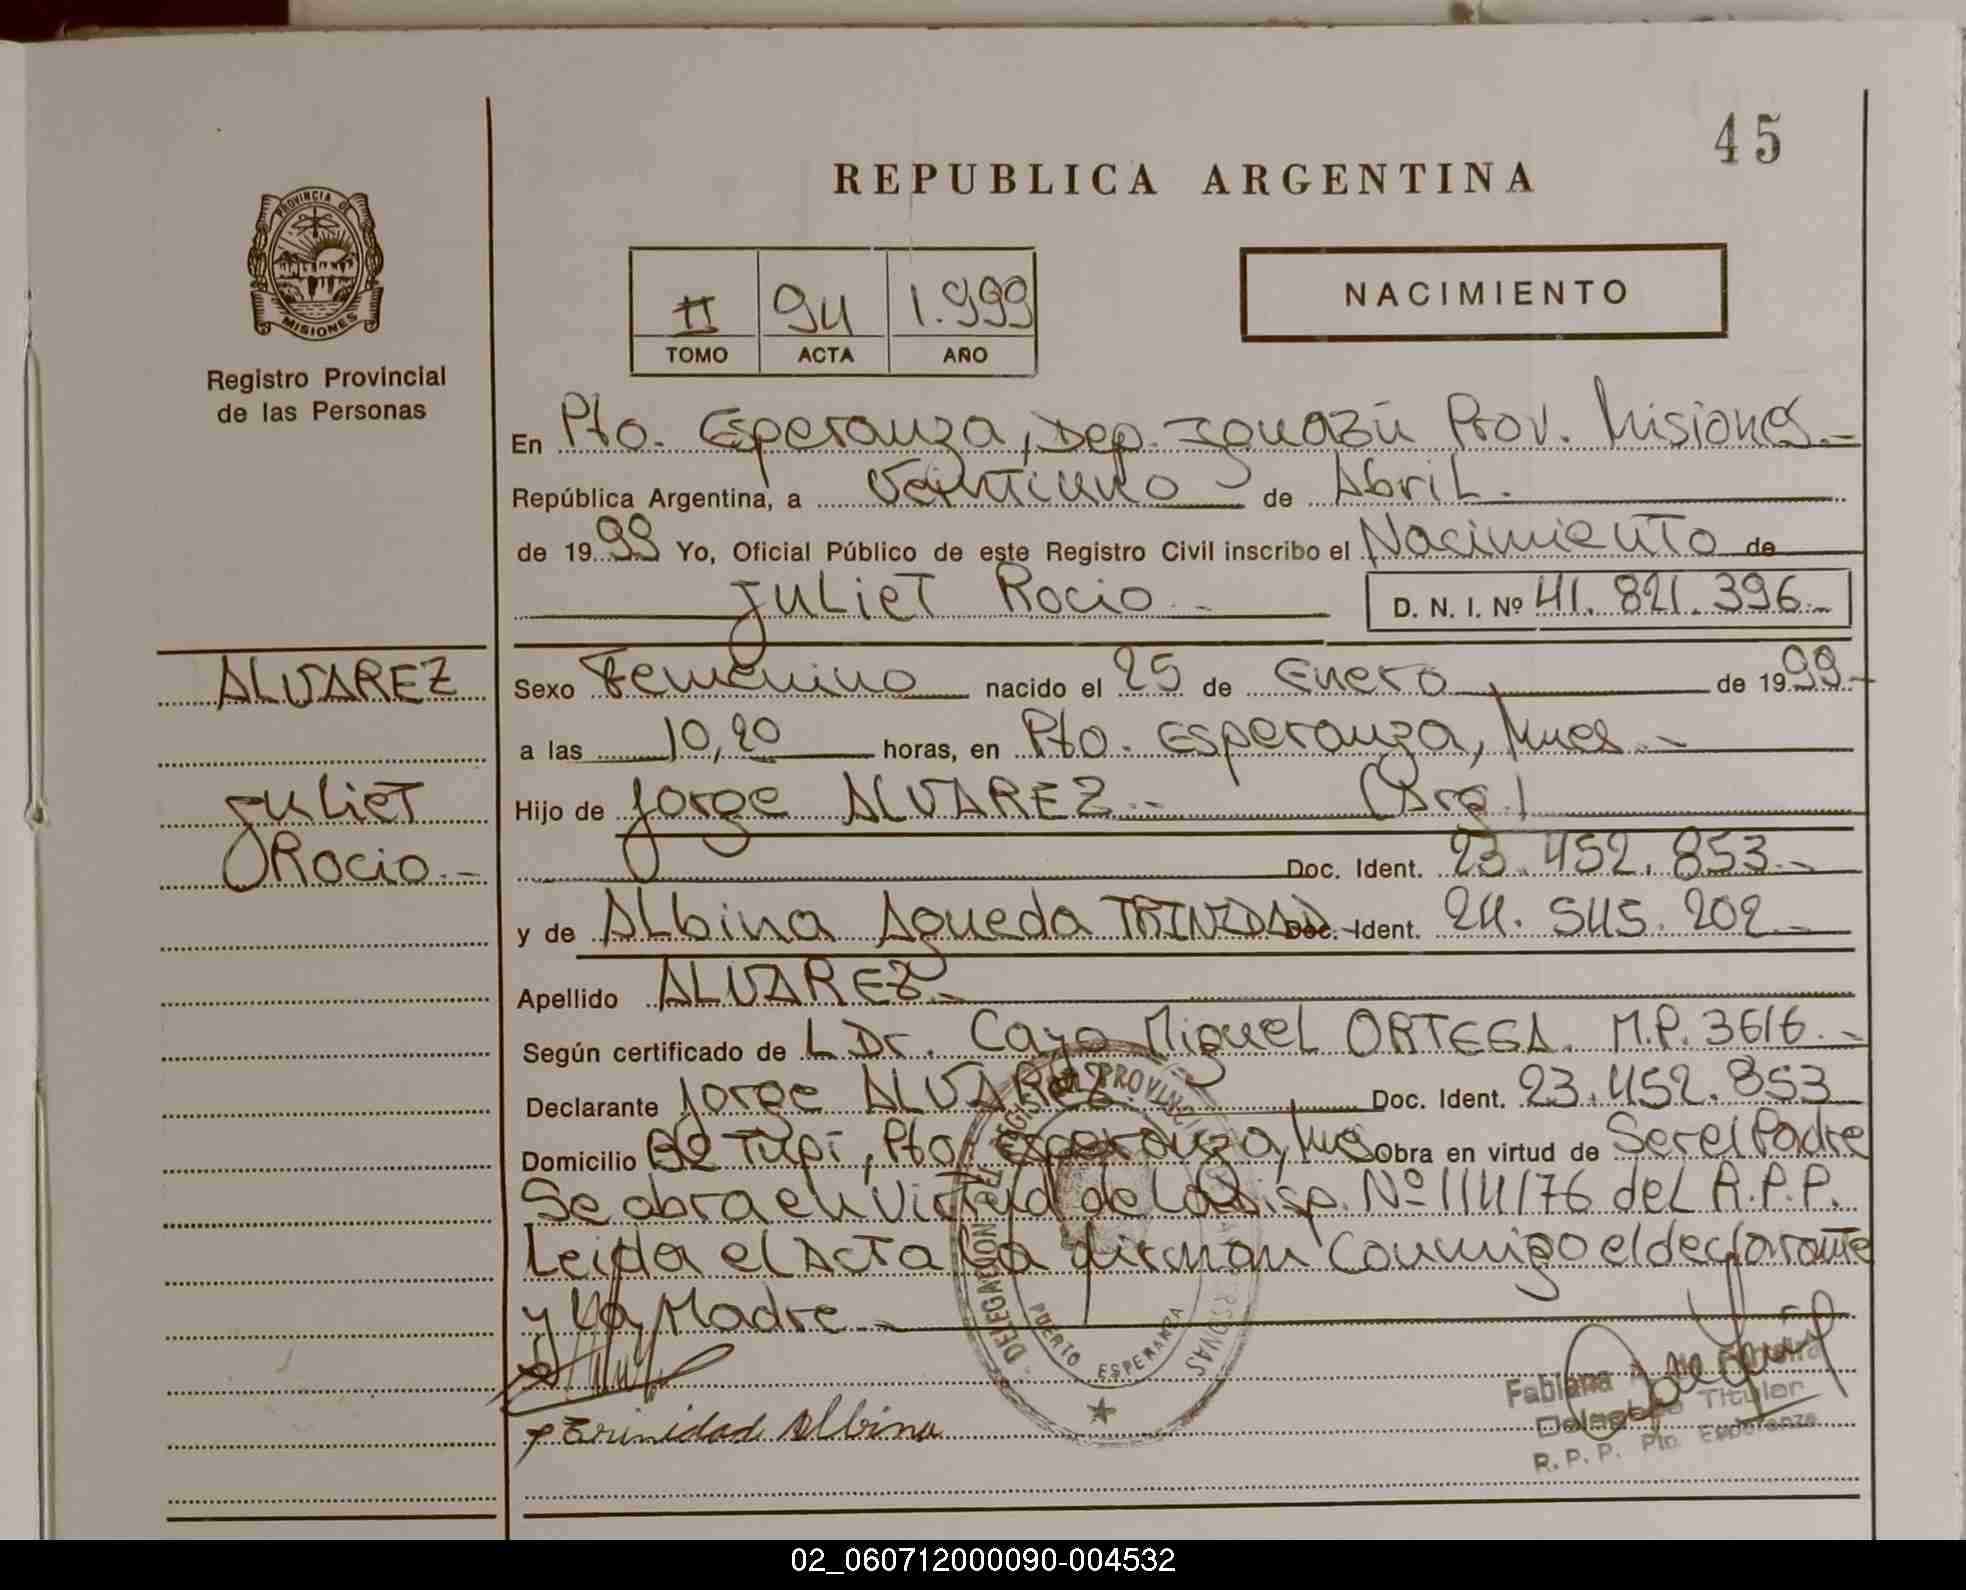 45
REPUBLICA ARGENTINA
PROVINCIA DE
MISIONES
Registro Provincial
de las Personas
II 94 1.999
TOMO ACTA AÑO
NACIMIENTO
En Pto. Esperanza, Dep. Iguazú Prov. Misiones.-
República Argentina, a Veintiuno de Abril.
de 1999 Yo, Oficial Público de este Registro Civil inscribo el Nacimiento de
Juliet Rocio.-
D. N. I. Nº 41.821.396.-
ALVAREZ
Juliet
Rocio.-
Sexo Femenino nacido el 25 de Enero de 1999.-
a las 10,20 horas, en Pto. Esperanza, Mnes.-
Hijo de Jorge ALVAREZ.- (Arg.)
Doc. Ident. 23.452.853.-
y de Albina Agueda TRINIDAD Doc. Ident. 24.545.202.-
Apellido ALVAREZ.-
Según certificado de L Dr. Cayo Miguel ORTEGA. M.P. 3616.-
Declarante Jorge ALVAREZ. Doc. Ident. 23.452.853
Domicilio Bº Tupi, Pto. Esperanza, Mnes Obra en virtud de Ser el Padre
Se obra en virtud de la Disp. Nº 114/76 del R.P.P.
Leida el Acta la firman conmigo el declarante
y la Madre.-
DELEGACION
PUERTO ESPERANZA
Trinidad Albina
Fabiana
Delegada Titular
R.P.P. Pto. Esperanza
02_060712000090-004532